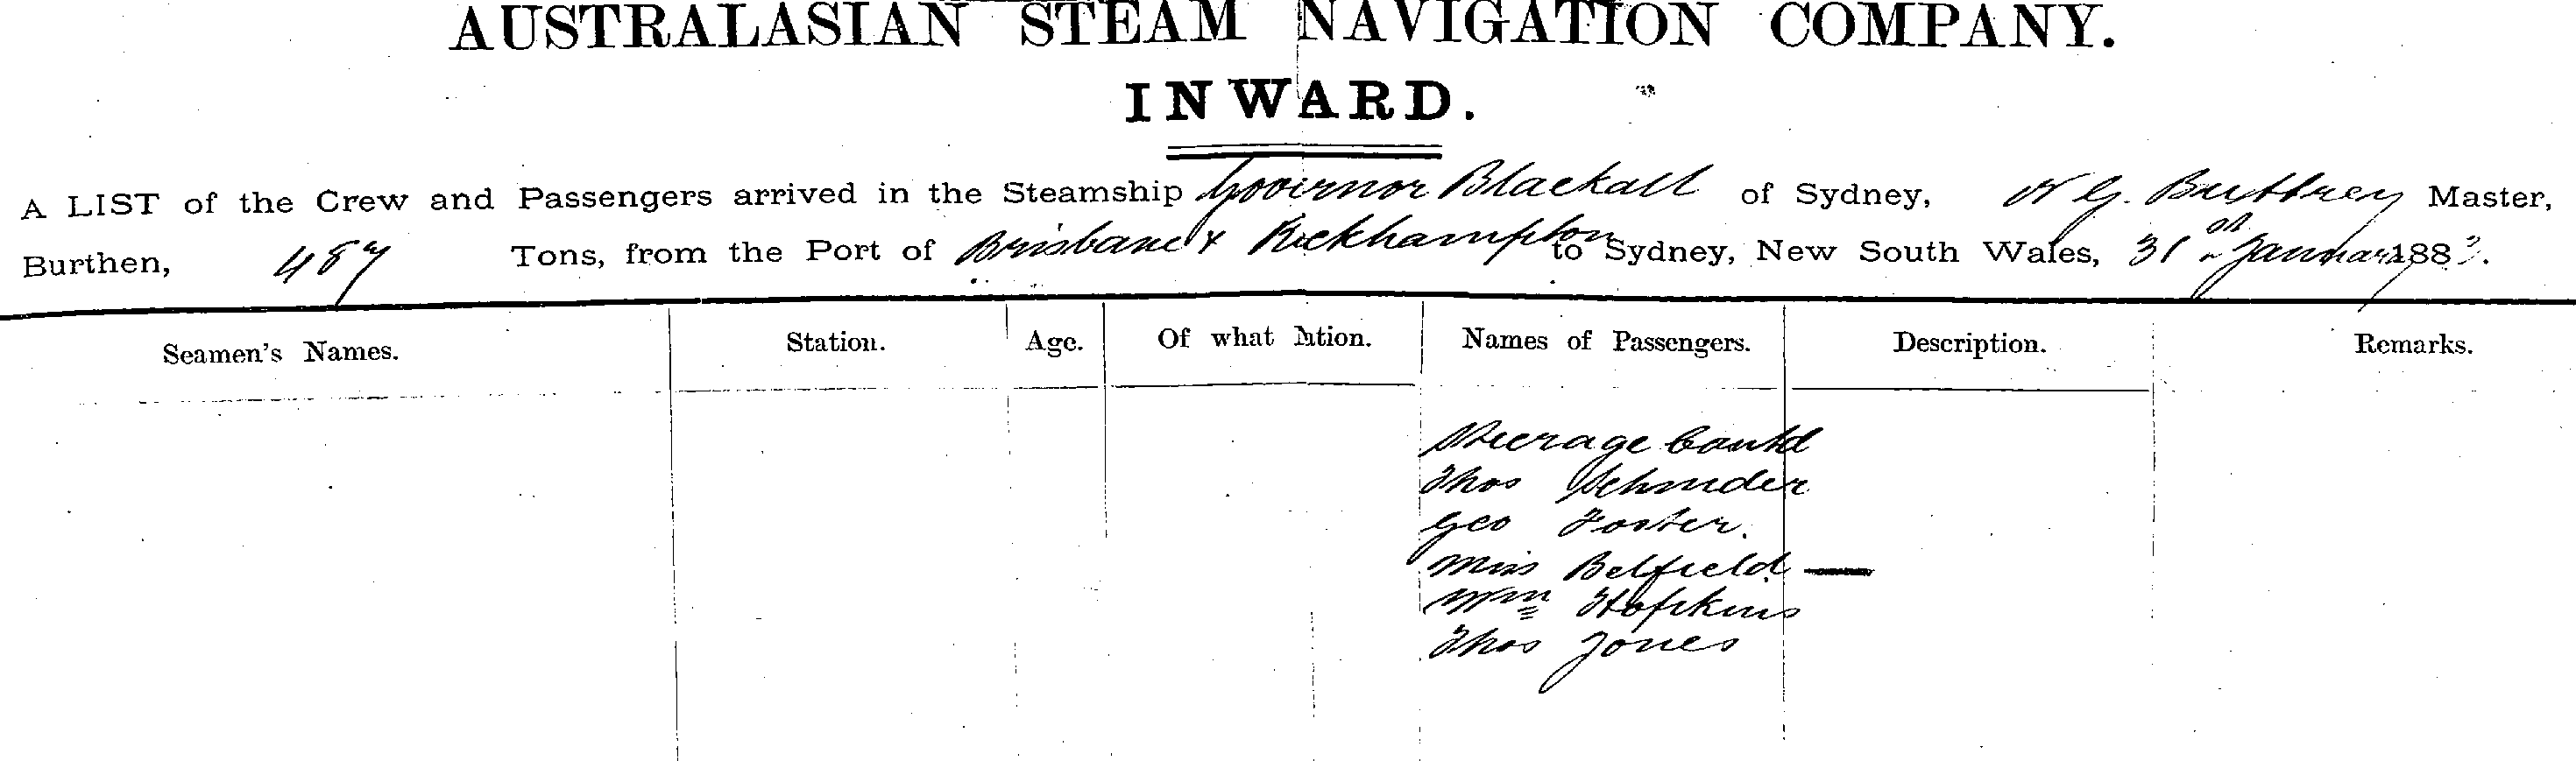 AUSTRALASIAN STEAM NAVIGATION COMPANY.
INWARD.
A LIST of the Crew and Passengers arrived in the Steamship Governor Blackall of Sydney, W G. Buttrey Master,
Burthen, 487 Tons, from the Port of Brisbane & Rockhampton to Sydney, New South Wales, 31st January 188
Seamen's Names. Station. Age. Of what Nation. Names of Passengers. Description. Remarks.
Steerage Contd
Thos Schnider
Geo Foster.
Miss Belfield —
Wm Hopkins
Thos Jones